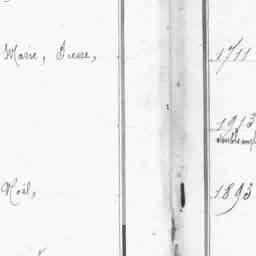 Marie, Pierre, 1711
1913
Noël, 1893